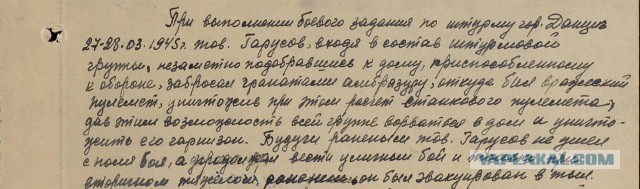 При выполнении боевого задания по штурму гор. Данциг
27-28.03.1945г. тов. Гарусов, входя в состав штурмовой
группы, незаметно подобравшись к дому, приспособленному
к обороне, забросал гранатами амбразуру, откуда бил вражеский
пулемет, уничтожив при этом расчет станкового пулемета,
дав этим возможность всей группе ворваться в дом и уничто-
жить его гарнизон. Будучи раненым тов. Гарусов не ушел
с поля боя, а продолжал вести уличный бой и
вторичном ранении он был эвакуирован в тыл.
YAPLAKAL.COM